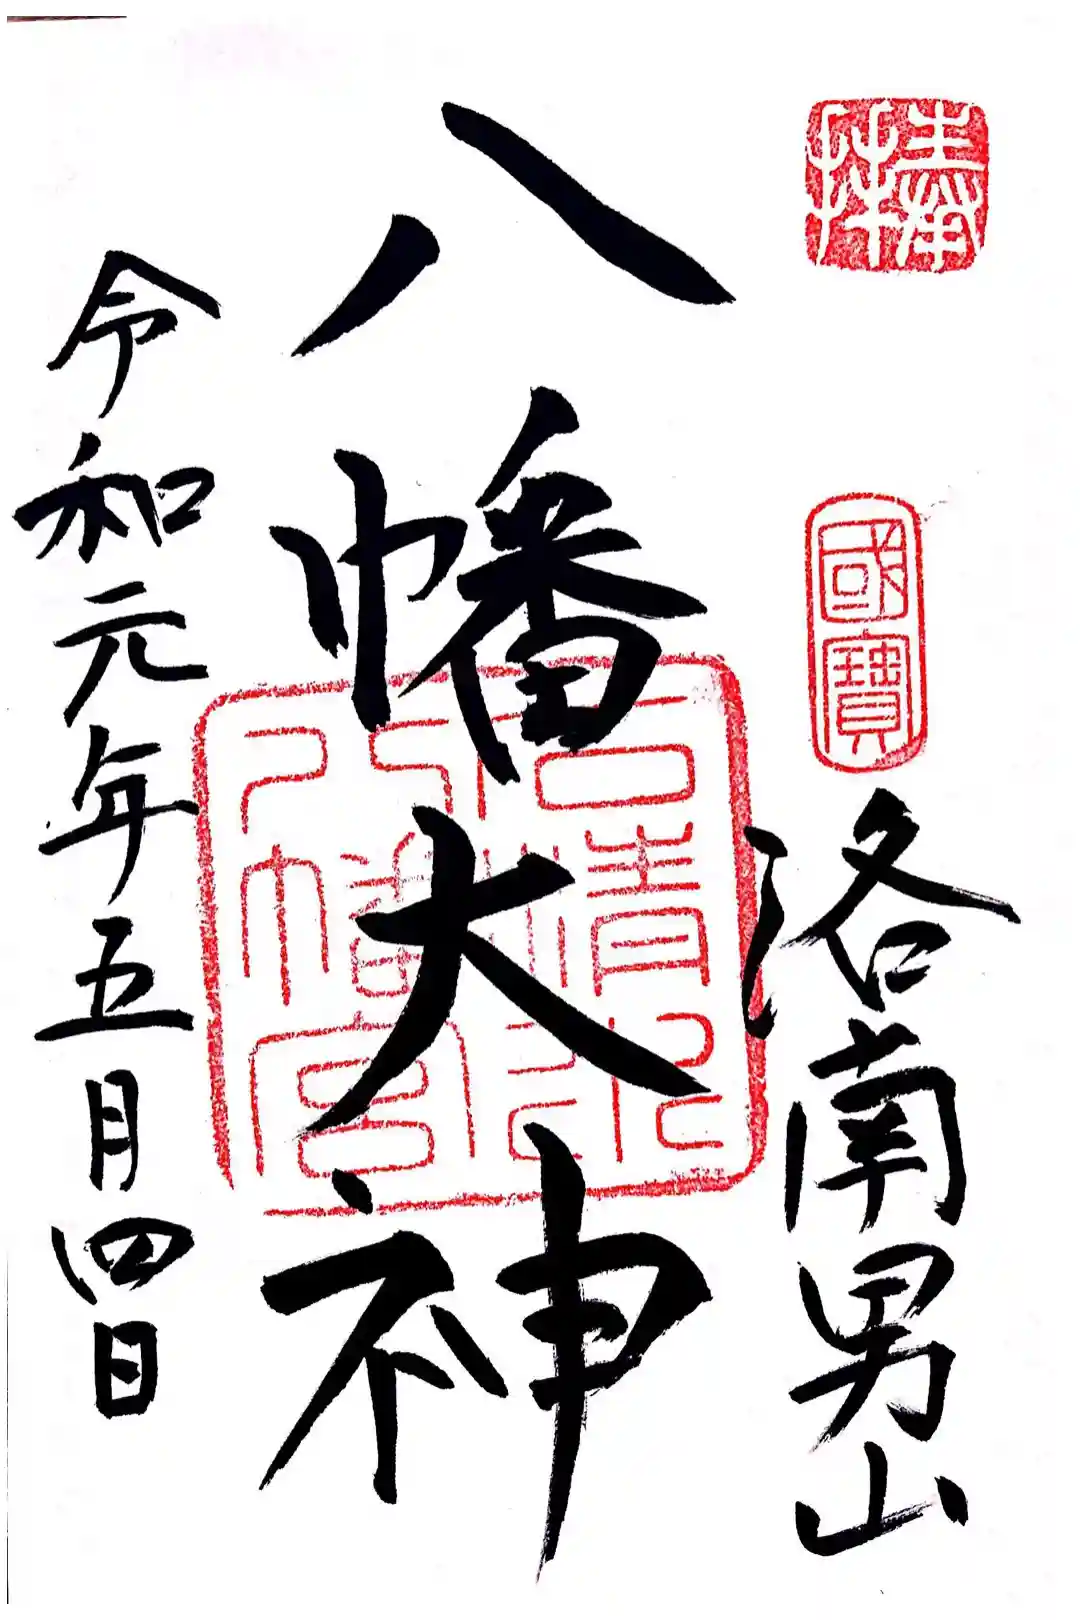 奉拝
國寶
洛南男山
八幡大神
石清水
八幡宮
令和元年五月四日